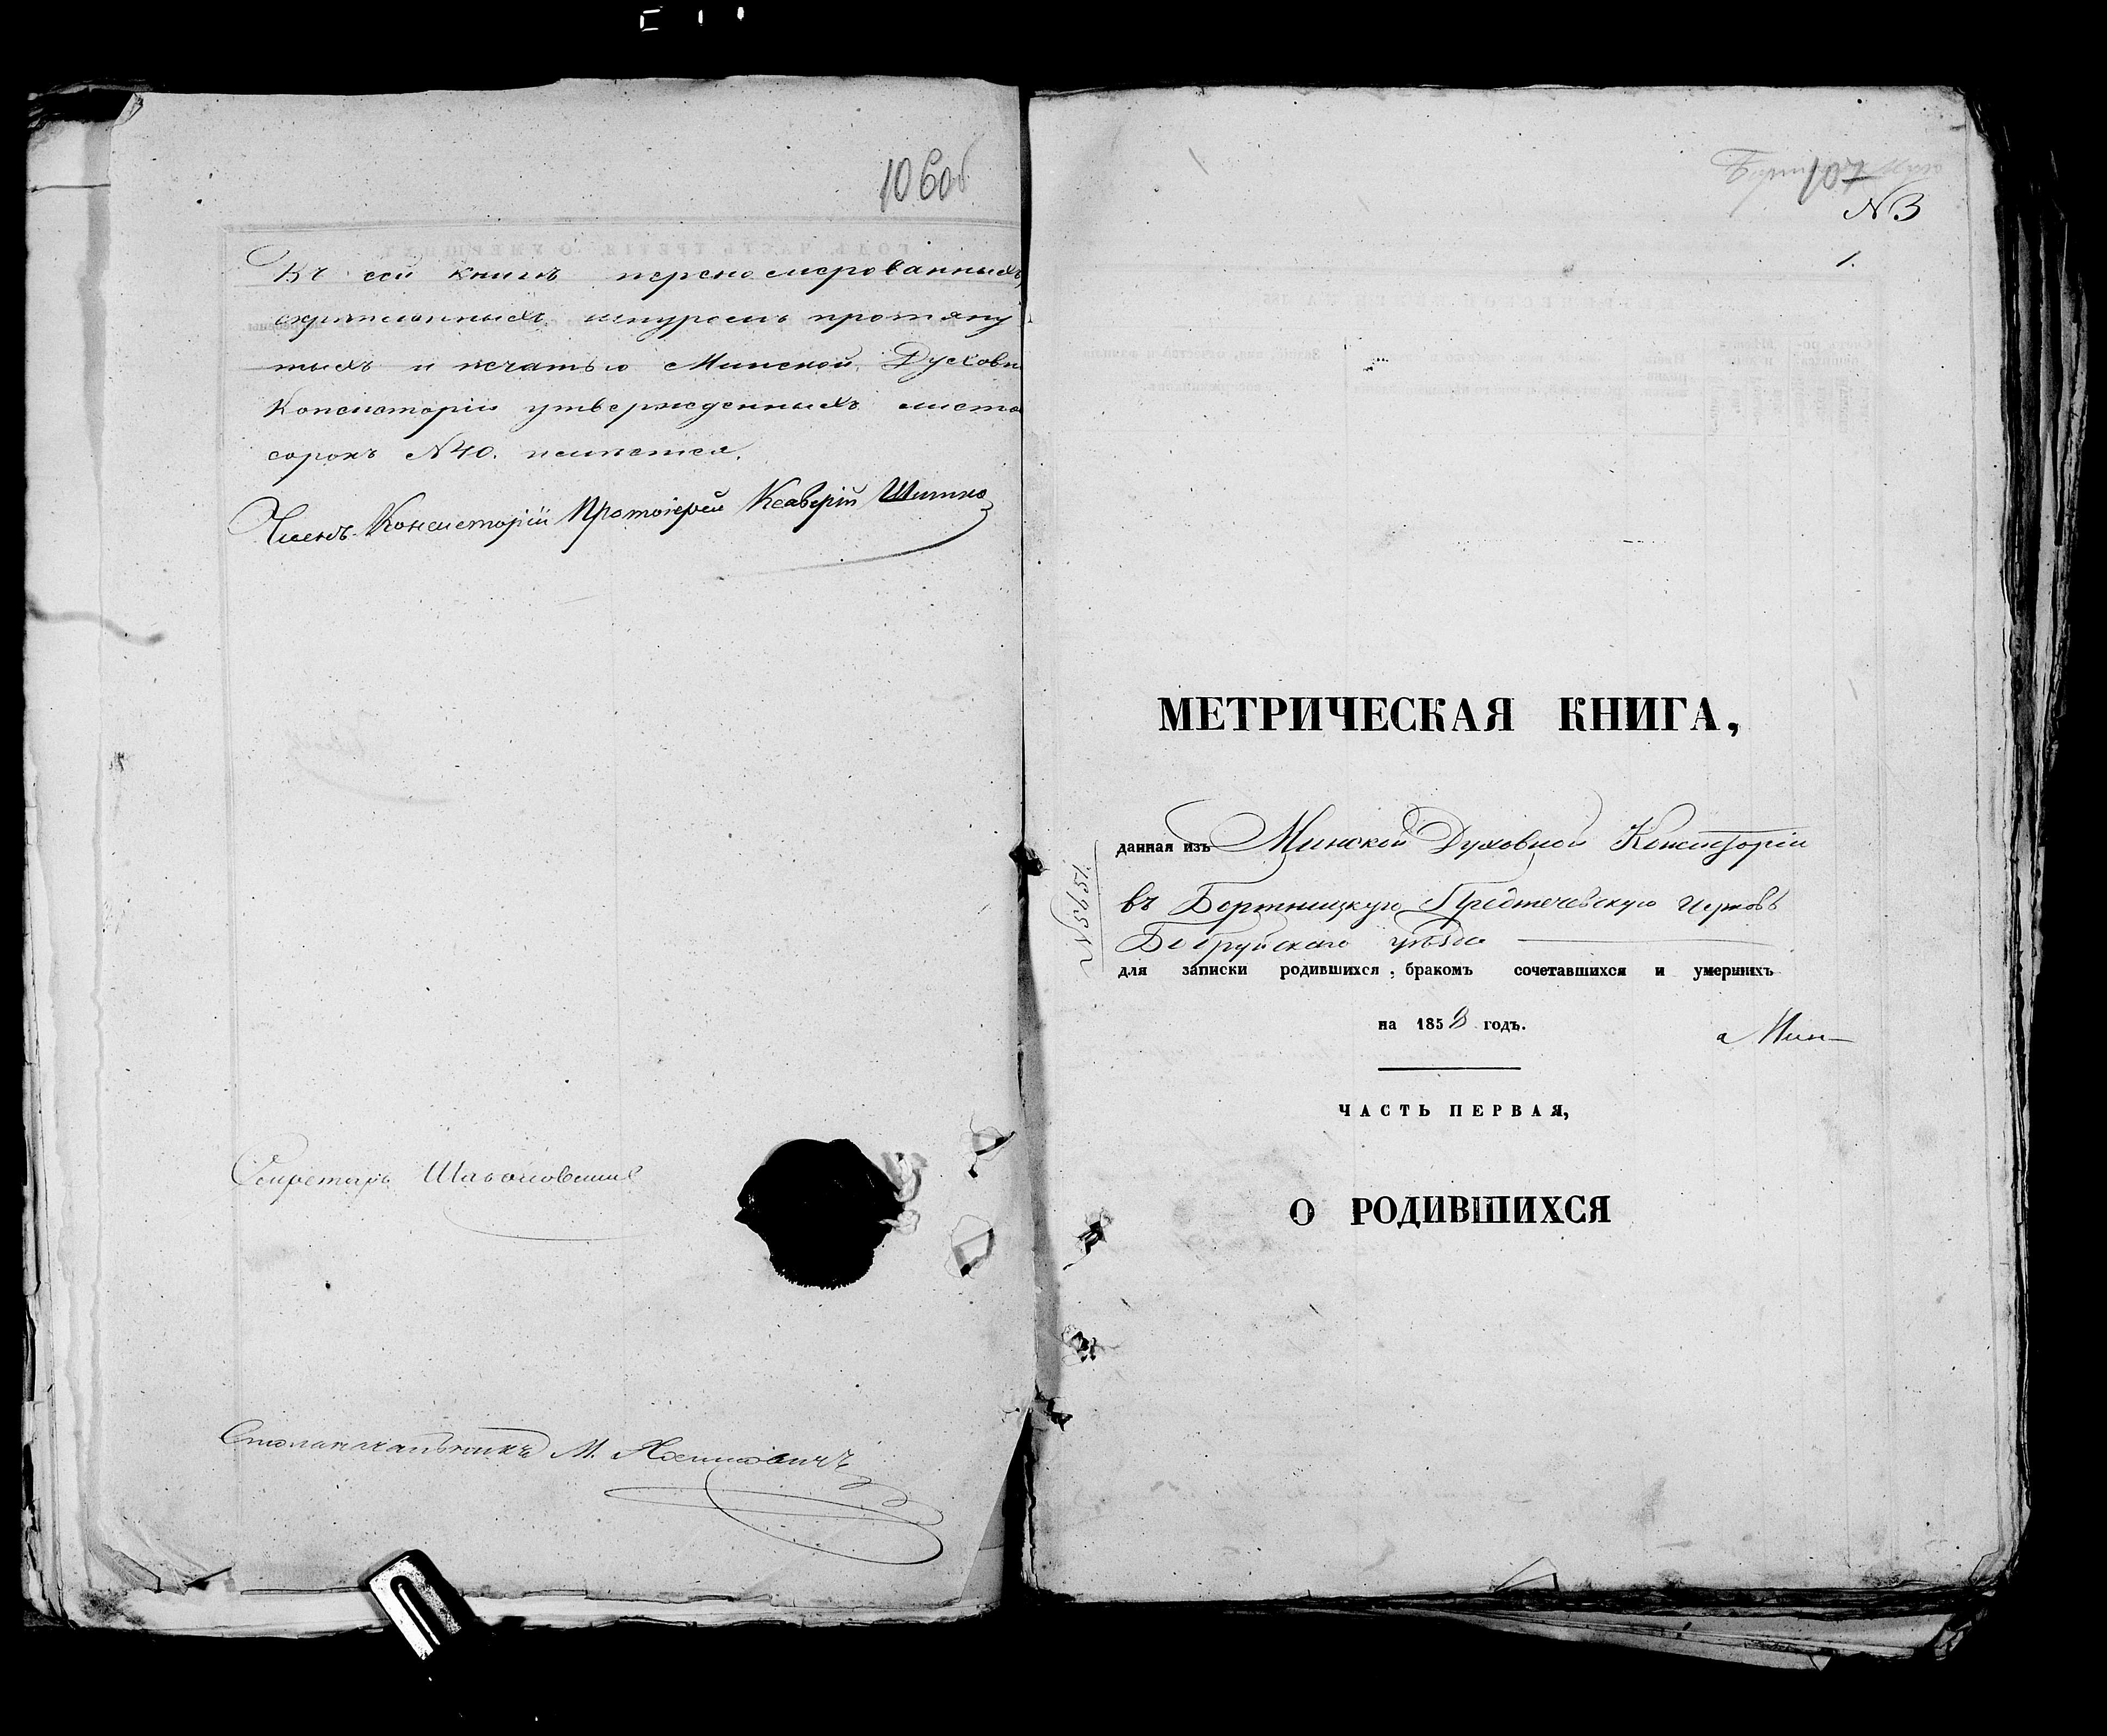 106об
Въ сей книгѣ перенумерованныхъ,
скрѣпленныхъ шнуромъ протяну
тыхъ и печатью Минской Духовн
Консисторіи утвержденныхъ листо
сорокъ N40. имѣется.
Членъ Консисторіи Протоіерей Ксаверій
Секретарь
Столоначальникъ М.
107
N 3
1.
МЕТРИЧЕСКАЯ КНИГА,
данная изъ Минской Духовной Консисторіи
въ Бортницкую Предтечевскую Церковь
Бобруйскаго уѣзда
N 5651.
для записки родившихся, бракомъ сочетавшихся и умершихъ
на 1858 годъ.
Мин-
ЧАСТЬ ПЕРВАЯ,
О РОДИВШИХСЯ